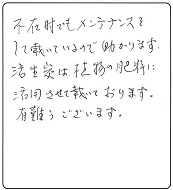 不在時でもメンテナンスを
して戴いているので助かります。
活生炭は、植物の肥料に
活用させて戴いております。
有難うございます。